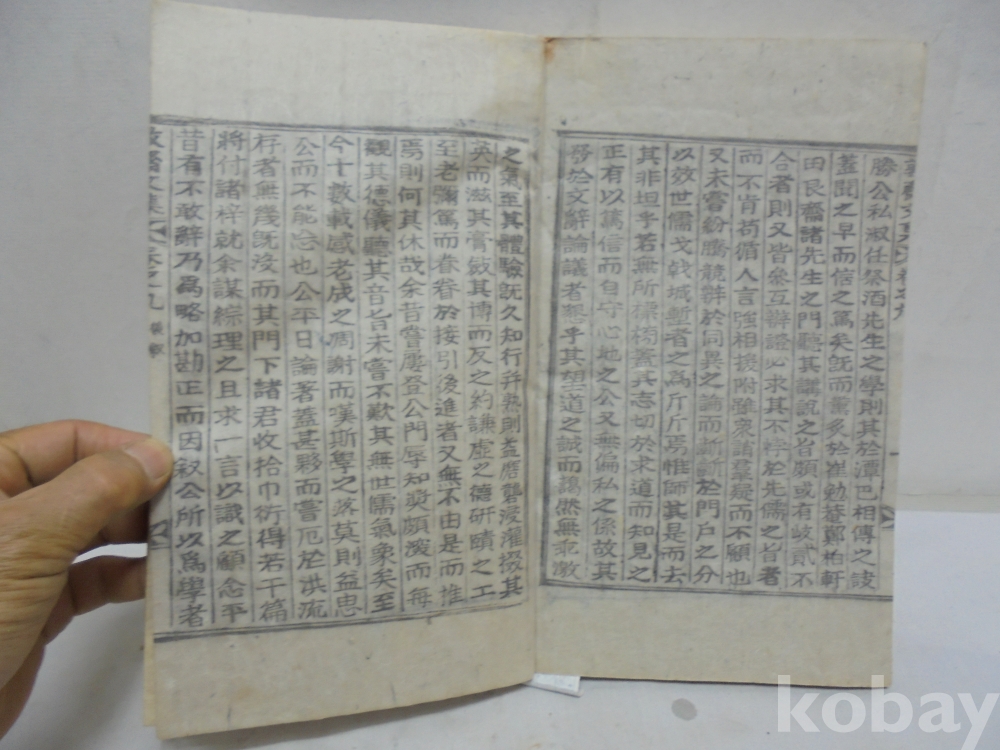 勝公私淑任祭酒先生之學則其於潭巴相傳之訣
蓋聞之早而信之篤矣旣而薰炙於崔勉菴鄭柏軒
田艮齋諸先生之門聽其講說之旨顧或有岐貳不
合者則又皆叅互辯證必求其不悖於先儒之旨者
而不肯苟循人言強相援附雖衆諸羣疑而不顧也
又未嘗紛騰競辭於同異之論而斷斷於門戶之分
以效世儒戈戟城塹者之爲斤斤焉惟師其是而去
其非坦乎若無所標榜蓋其志切於求道而知見之
正有以篤信而自守心地之公又無偏私之係故其
發於文辭論議者懇乎其望道之誠而藹然無乖激
之氣至其體驗旣久知行幷熟則益磨礱浸灌掇其
英而滋其膏斂其博而反之約謙虛之德硏賾之工
至老彌篤而眷眷於接引後進者又無不由是而推
焉則何其休哉余昔嘗屢登公門辱知奬頗深而每
觀其德儀聽其音旨未嘗不歎其無世儒氣象矣至
今十數載感老成之凋謝而嘆斯學之落莫則益思
公而不能忘也公平日論著蓋甚夥而嘗厄於洪流
存者無幾旣沒而其門下諸君收拾巾衍得若干篇
將付諸梓就余謀綜理之且求一言以識之顧念平
昔有不敢辭乃爲略加勘正而因叙公所以爲學者
文集 卷之九